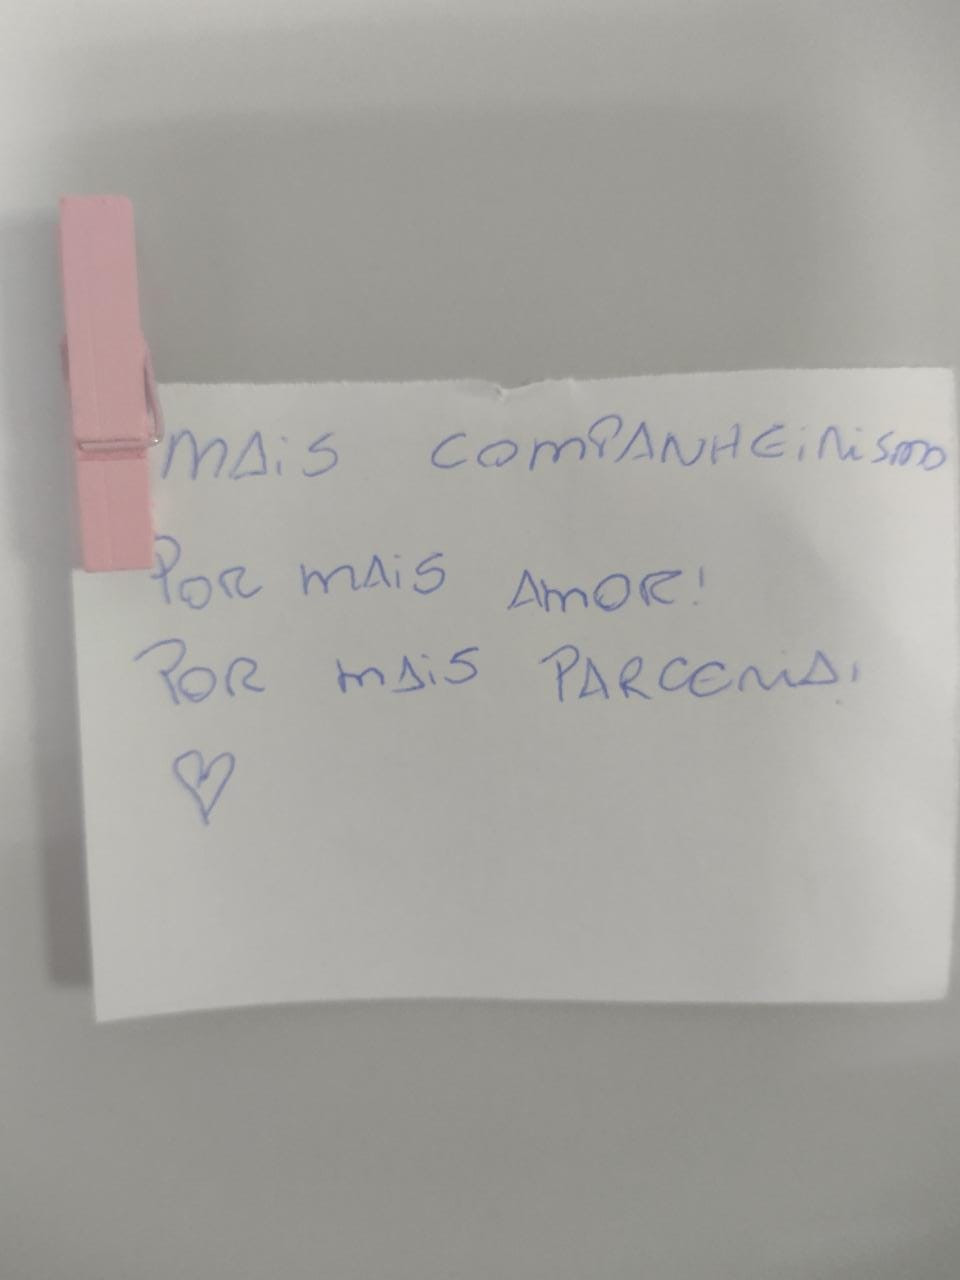 MAiS COMPANHEIRISMO
POR MAIS AMOR!
POR MAIS PARCERIA!
♡